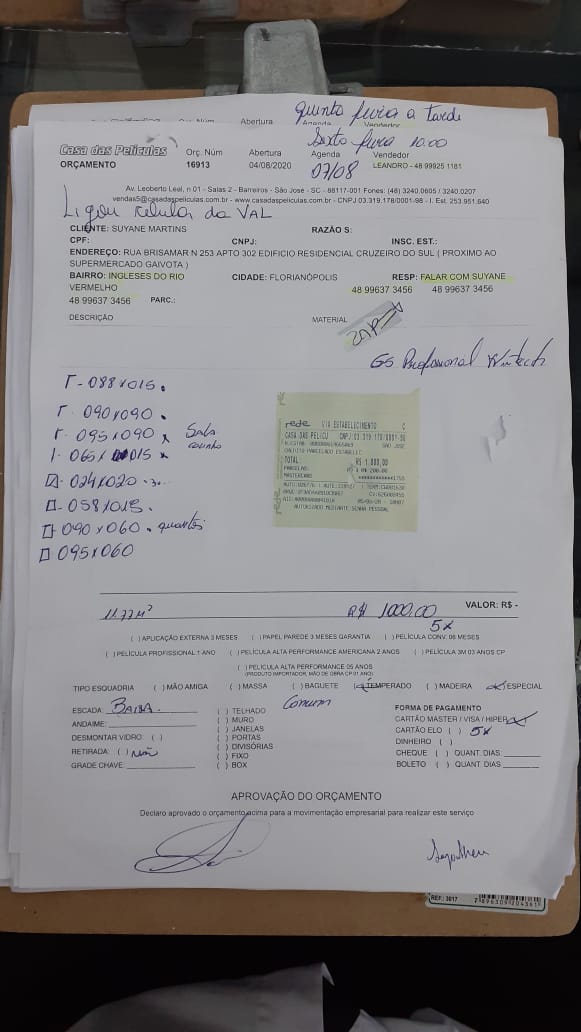 quinta feira a tarde
Orç. Núm Abertura Agenda Vendedor
Sexta feira 10:00
Casa das Películas Orç. Núm Abertura Agenda Vendedor
ORÇAMENTO 16913 04/08/2020 07/08 LEANDRO - 48 99925 1181
Av. Leoberto Leal, n 01 - Salas 2 - Barreiros - São José - SC - 88117-001 Fones: (48) 3240.0605 / 3240.0207
vendas5@casadaspeliculas.com.br - www.casadaspeliculas.com.br - CNPJ 03.319.178/0001-98 - I. Est. 253.951.640
Ligou celular da VAL
CLIENTE: SUYANE MARTINS RAZÃO S:
CPF: CNPJ: INSC. EST.:
ENDEREÇO: RUA BRISAMAR N 253 APTO 302 EDIFICIO RESIDENCIAL CRUZEIRO DO SUL ( PROXIMO AO
SUPERMERCADO GAVOTA )
BAIRRO: INGLESES DO RIO CIDADE: FLORIANÓPOLIS RESP: FALAR COM SUYANE
VERMELHO 48 99637 3456 48 99637 3456
48 99637 3456 PARC.:
DESCRIÇÃO MATERIAL
ZAP
GS Profissional Wintech
088x015.
090x090.
095x090 x Sala
065x 015 x
024x020
058x015.
090x060 . quartos
095x060
rede VIA ESTABELECIMENTO C
CASA DAS PELICU CNPJ:03.319.178/0001-98
SAO JOSE
CREDITO PARCELADO ESTABELEC
TOTAL R$ 1.000,00
PARCELAS: R$ 200,00
MASTERCARD
AUTORIZADO MEDIANTE SENHA PESSOAL
rede
11.77M² R$ 1000,00 VALOR: R$ -
5x
( ) APLICAÇÃO EXTERNA 3 MESES ( ) PAPEL PAREDE 3 MESES GARANTIA ( ) PELÍCULA CONV. 06 MESES
( ) PELÍCULA PROFISSIONAL 1 ANO ( ) PELÍCULA ALTA PERFORMANCE AMERICANA 2 ANOS ( ) PELÍCULA 3M 03 ANOS CP
( ) PELÍCULA ALTA PERFORMANCE 05 ANOS
(PRODUTO IMPORTADOR, MÃO DE OBRA CP 01 ANO)
TIPO ESQUADRIA ( ) MÃO AMIGA ( ) MASSA ( ) BAGUETE (x) TEMPERADO ( ) MADEIRA (x) ESPECIAL
ESCADA BAIXA ( ) TELHADO Comum FORMA DE PAGAMENTO
ANDAIME: ( ) MURO CARTÃO MASTER / VISA / HIPER (x)
DESMONTAR VIDRO: ( ) ( ) JANELAS CARTÃO ELO ( ) 5x
RETIRADA: ( ) Não ( ) PORTAS DINHEIRO ( )
GRADE CHAVE: ( ) DIVISÓRIAS CHEQUE ( ) QUANT. DIAS:
( ) FIXO BOLETO ( ) QUANT. DIAS
( ) BOX
APROVAÇÃO DO ORÇAMENTO
Declaro aprovado o orçamento acima para a movimentação empresarial para realizar este serviço
REF.: 3017